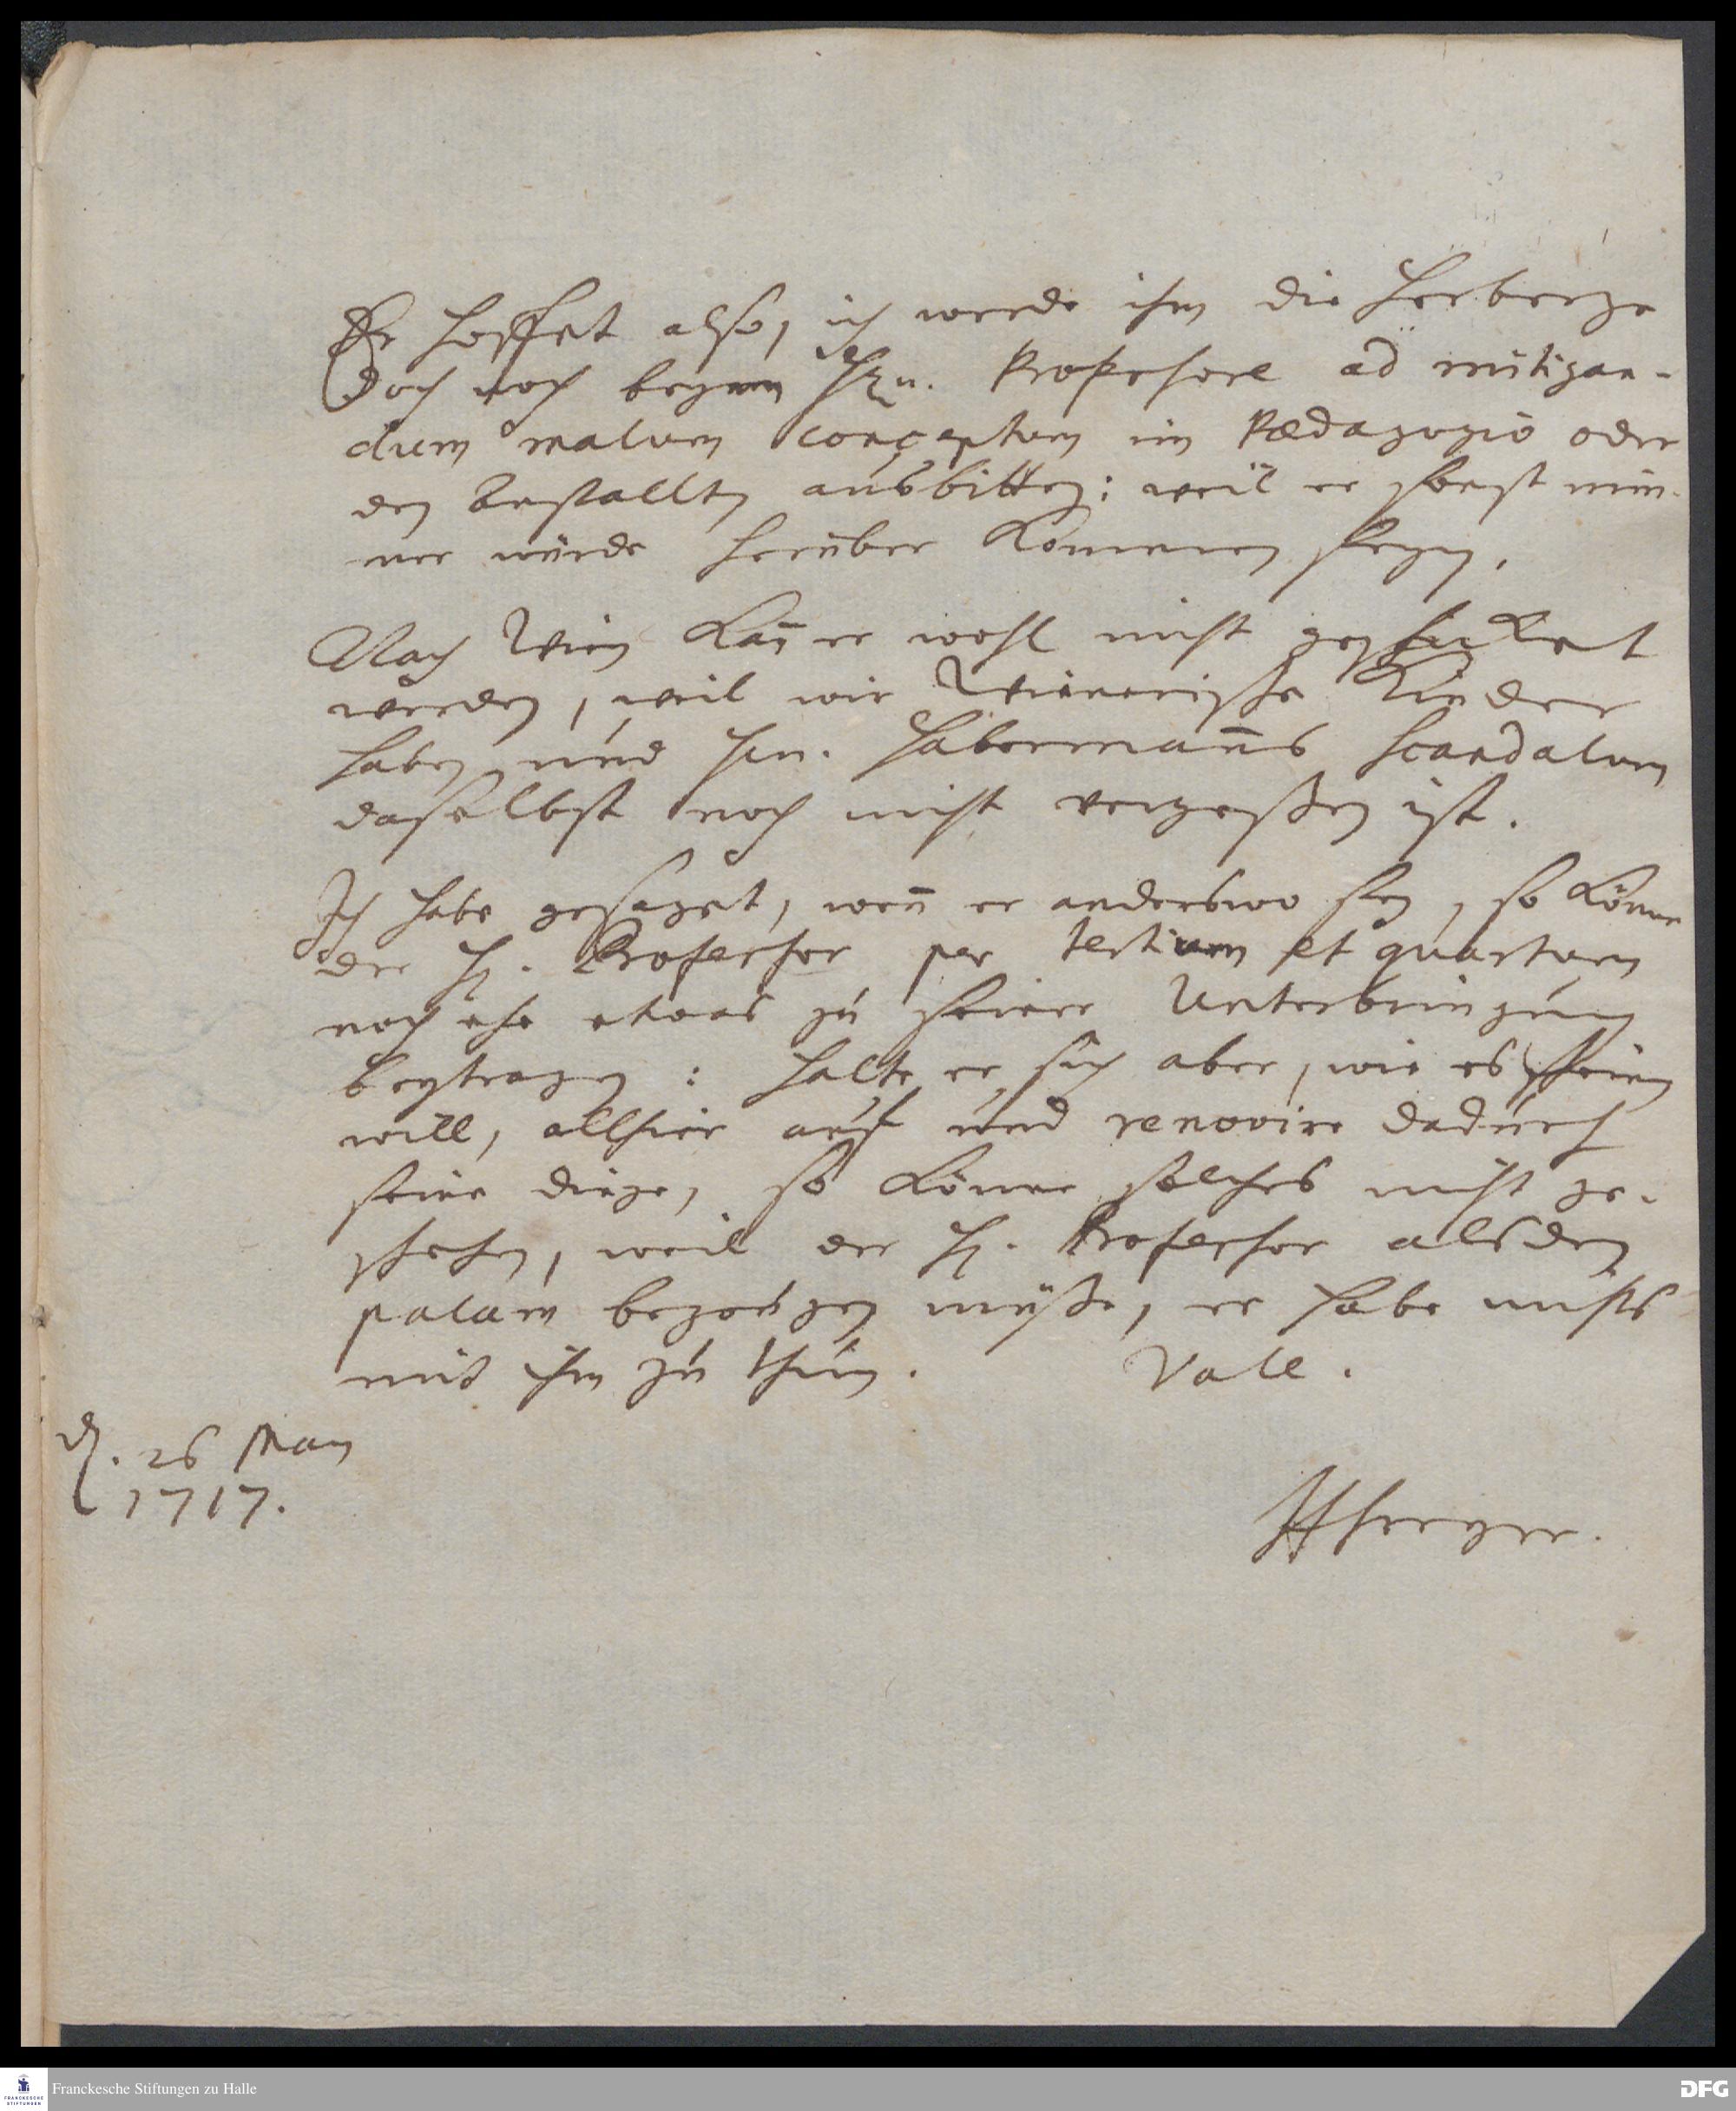 Er hoffet also, ich werde ihm die Herberge
doch noch beym Hrn. Professore ad mitigan-
dum malum conceptum im Pædagogio oder
den Anstalten ausbitten: weil er sonst nim-
mer würde herüber kommen seyn.
Nach Wien kan̄ er wohl nicht geschicket
werden, weil wir Wienerische Kinder
haben und Hrn. Haberman̄s scandalum
daselbst noch nicht vergeßen ist.
Ich habe gesaget, wen̄ er anderswo sey, so könne
der H. Professor per tertium et quartum
noch ehe etwas zu seiner Unterbringung
beytragen: halte er sich aber, wie es scheinen
will, allhier auf und renovire dadurch
seine dinge, so könne solches nicht ge-
schehen, weil der H. Professor alsden
palam bezeugen müße, er habe nichts
mit ihm zu thun. Vale.
d. 26 May
1717.
HFreyer.
Franckesche Stiftungen zu Halle
FRANCKESCHE
STIFTUNGEN
DFG